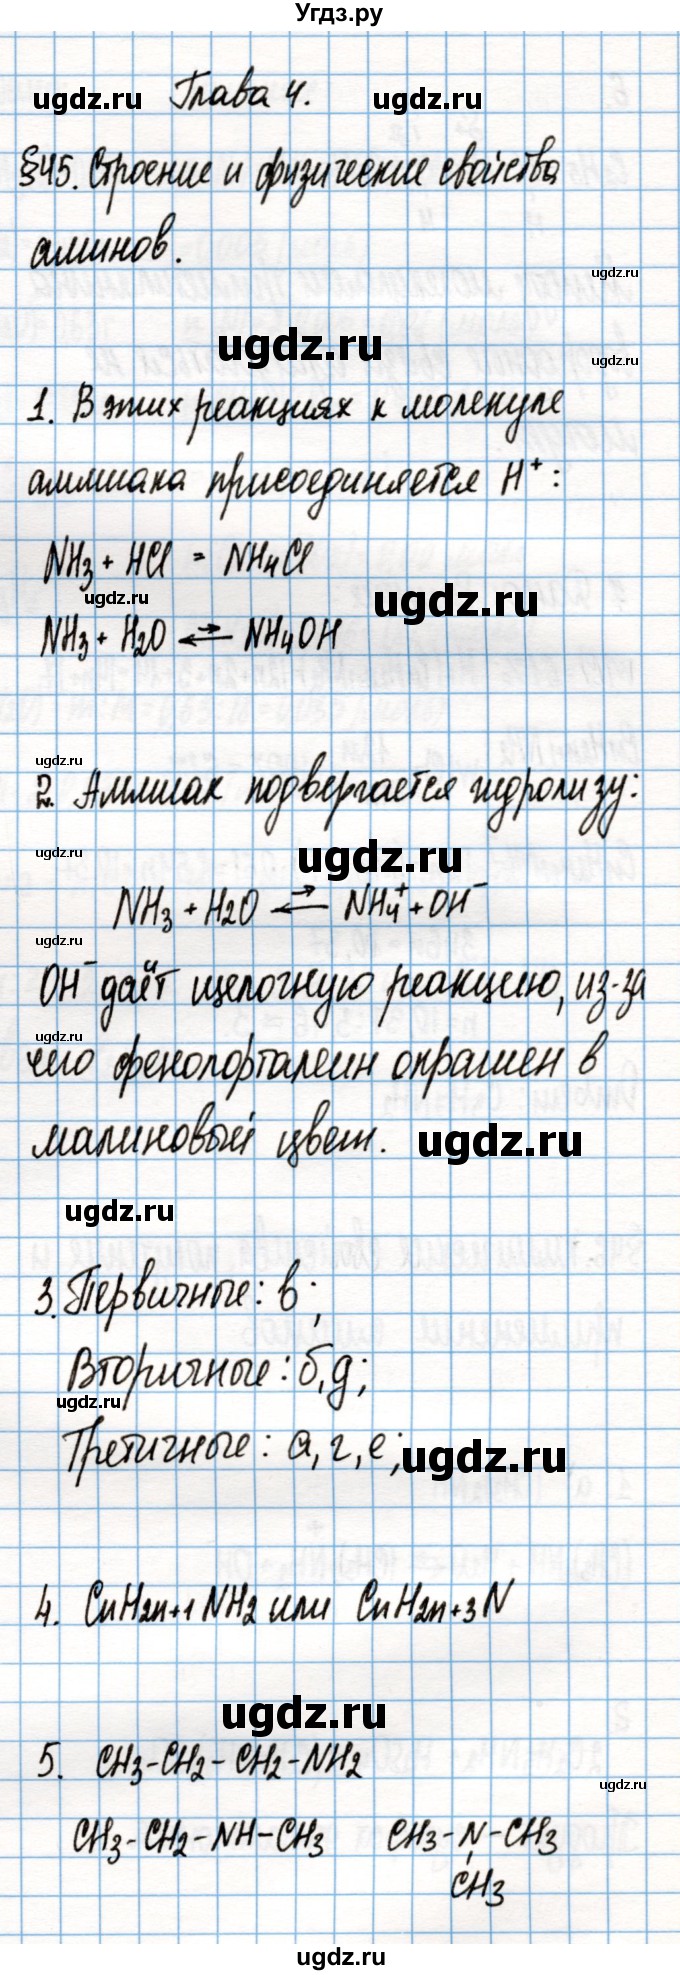 Угдз.ру
ugdz.ru Глава 4. ugdz.ru
§45. Строение и физические свойства
аминов.
ugdz.ru
ugdz.ru
ugdz.ru
1. В этих реакциях к молекуле
аммиака присоединяется H⁺:
NH₃ + HCl = NH₄Cl
ugdz.ru ugdz.ru
NH₃ + H₂O ⇄ NH₄OH
ugdz.ru
2. Аммиак подвергается гидролизу:
ugdz.ru ugdz.ru
NH₃ + H₂O ⇄ NH₄⁺ + OH⁻
ugdz.ru
OH⁻ даёт щелочную реакцию, из-за
ugdz.ru
чего фенолфталеин окрашен в
малиновый цвет. ugdz.ru
ugdz.ru
3. Первичные: в;
Вторичные: б, д;
ugdz.ru
Третичные: а, г, е; ugdz.ru
4. CnH₂n+1NH₂ или CnH₂n+3N
ugdz.ru
5. CH₃-CH₂-CH₂-NH₂
ugdz.ru
CH₃-CH₂-NH-CH₃ CH₃-N-CH₃
CH₃
ugdz.ru